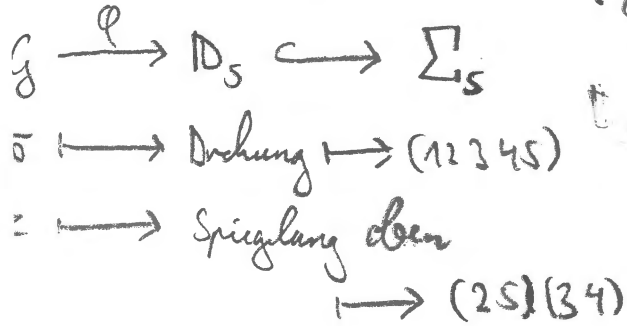 G φ→ D₅ ↪ Σ₅
σ̄ ↦ Drehung ↦ (12345)
↦ Spiegelung oben
↦ (25)(34)